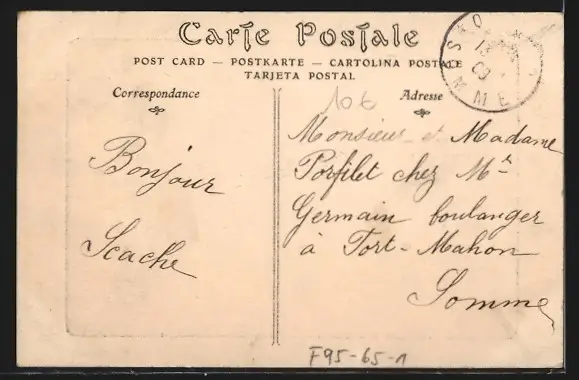 Carte Postale
POST CARD — POSTKARTE — CARTOLINA POSTALE
TARJETA POSTAL
Correspondance
Adresse
10 €
Bonjour
Scache
Monsieur et Madame
Porfilet chez Mr
Germain boulanger
à Fort-Mahon
Somme
F95-65-1